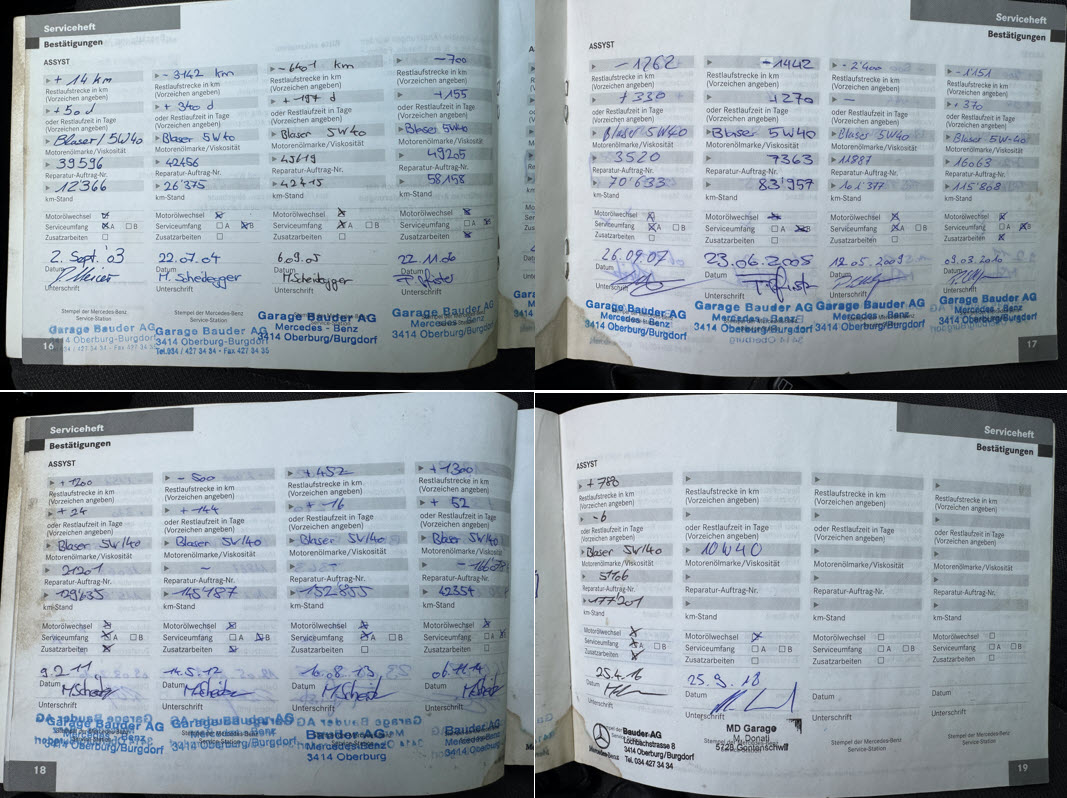 Serviceheft
Bestätigungen
ASSYST
+ 14 km
Restlaufstrecke in km
(Vorzeichen angeben)
+ 50 d
oder Restlaufzeit in Tage
(Vorzeichen angeben)
Blaser / 5W40
Motorenölmarke/Viskosität
39596
Reparatur-Auftrag-Nr.
12'366
km-Stand
Motorölwechsel
Serviceumfang A B
Zusatzarbeiten
2. Sept. 03
Datum
Unterschrift
Stempel der Mercedes-Benz
Service-Station
Garage Bauder AG
3414 Oberburg-Burgdorf
- 3142 km
Restlaufstrecke in km
(Vorzeichen angeben)
+ 340 d
oder Restlaufzeit in Tage
(Vorzeichen angeben)
Blaser 5W40
Motorenölmarke/Viskosität
42456
Reparatur-Auftrag-Nr.
26'375
km-Stand
Motorölwechsel
Serviceumfang A B
Zusatzarbeiten
22.07.04
Datum
M. Scheidegger
Unterschrift
Stempel der Mercedes-Benz
Service-Station
Garage Bauder AG
3414 Oberburg-Burgdorf
Tel. 034 / 427 34 34 - Fax 427 34 35
- 6401 km
Restlaufstrecke in km
(Vorzeichen angeben)
oder Restlaufzeit in Tage
(Vorzeichen angeben)
Blaser 5W40
Motorenölmarke/Viskosität
Reparatur-Auftrag-Nr.
42415
km-Stand
Motorölwechsel
Serviceumfang A B
Zusatzarbeiten
6.09.05
Datum
M. Scheidegger
Unterschrift
Garage Bauder AG
Mercedes - Benz
3414 Oberburg/Burgdorf
- 700
Restlaufstrecke in km
(Vorzeichen angeben)
+155
oder Restlaufzeit in Tage
(Vorzeichen angeben)
Blaser 5W40
Motorenölmarke/Viskosität
49205
Reparatur-Auftrag-Nr.
58'158
km-Stand
Motorölwechsel
Serviceumfang A
Zusatzarbeiten
22.11.06
Datum
Unterschrift
Garage Bauder AG
Mercedes - Benz
3414 Oberburg/Burgdorf
16
Serviceheft
Bestätigungen
ASSYST
- 1262
Restlaufstrecke in km
(Vorzeichen angeben)
+ 330
oder Restlaufzeit in Tage
(Vorzeichen angeben)
Blaser 5W40
Motorenölmarke/Viskosität
3520
Reparatur-Auftrag-Nr.
70'633
km-Stand
Motorölwechsel
Serviceumfang A B
Zusatzarbeiten
26.09.07
Datum
Unterschrift
Garage Bauder AG
Mercedes - Benz
3414 Oberburg/Burgdorf
-1442
Restlaufstrecke in km
(Vorzeichen angeben)
+270
oder Restlaufzeit in Tage
(Vorzeichen angeben)
Blaser 5W40
Motorenölmarke/Viskosität
7363
Reparatur-Auftrag-Nr.
83'957
km-Stand
Motorölwechsel
Serviceumfang A B
Zusatzarbeiten
23.06.2005
Datum
Unterschrift
Garage Bauder AG
Mercedes - Benz
3414 Oberburg/Burgdorf
- 2'400
Restlaufstrecke in km
(Vorzeichen angeben)
-
oder Restlaufzeit in Tage
(Vorzeichen angeben)
Blaser 5W40
Motorenölmarke/Viskosität
11887
Reparatur-Auftrag-Nr.
101'377
km-Stand
Motorölwechsel
Serviceumfang A B
Zusatzarbeiten
12.05.2009
Datum
Unterschrift
Garage Bauder AG
Mercedes - Benz
3414 Oberburg/Burgdorf
- 1151
Restlaufstrecke in km
(Vorzeichen angeben)
+ 370
oder Restlaufzeit in Tage
(Vorzeichen angeben)
Blaser 5W-40
Motorenölmarke/Viskosität
16063
Reparatur-Auftrag-Nr.
115'808
km-Stand
Motorölwechsel
Serviceumfang A B
Zusatzarbeiten
09.03.2010
Datum
Unterschrift
Garage Bauder AG
Mercedes - Benz
3414 Oberburg/Burgdorf
17
Serviceheft
Bestätigungen
ASSYST
+ 1200
Restlaufstrecke in km
(Vorzeichen angeben)
+ 24
oder Restlaufzeit in Tage
(Vorzeichen angeben)
Blaser 5W/40
Motorenölmarke/Viskosität
21201
Reparatur-Auftrag-Nr.
129'635
km-Stand
Motorölwechsel
Serviceumfang A B
Zusatzarbeiten
9.2.11
Datum
Unterschrift
Garage Bauder AG
3414 Oberburg/Burgdorf
- 500
Restlaufstrecke in km
(Vorzeichen angeben)
+ 144
oder Restlaufzeit in Tage
(Vorzeichen angeben)
Blaser 5W/40
Motorenölmarke/Viskosität
-
Reparatur-Auftrag-Nr.
145'187
km-Stand
Motorölwechsel
Serviceumfang A B
Zusatzarbeiten
14.5.12
Datum
Unterschrift
Garage Bauder AG
3414 Oberburg/Burgdorf
+ 452
Restlaufstrecke in km
(Vorzeichen angeben)
+ -16
oder Restlaufzeit in Tage
(Vorzeichen angeben)
Blaser 5W/40
Motorenölmarke/Viskosität
-
Reparatur-Auftrag-Nr.
152'855
km-Stand
Motorölwechsel
Serviceumfang A B
Zusatzarbeiten
16.08.13
Datum
Unterschrift
Bauder AG
Mercedes-Benz
3414 Oberburg
+ 1300
Restlaufstrecke in km
(Vorzeichen angeben)
+ 52
oder Restlaufzeit in Tage
(Vorzeichen angeben)
Blaser 5W/40
Motorenölmarke/Viskosität
Reparatur-Auftrag-Nr.
42354
km-Stand
Motorölwechsel
Serviceumfang A
Zusatzarbeiten
06.11.14
Datum
Unterschrift
Bauder AG
Mercedes-Benz
3414 Oberburg
18
Serviceheft
Bestätigungen
ASSYST
+ 780
Restlaufstrecke in km
(Vorzeichen angeben)
-6
oder Restlaufzeit in Tage
(Vorzeichen angeben)
Blaser 5W/40
Motorenölmarke/Viskosität
5166
Reparatur-Auftrag-Nr.
177'201
km-Stand
Motorölwechsel
Serviceumfang A B
Zusatzarbeiten
25.4.16
Datum
Unterschrift
Mercedes-Benz
Bauder AG
Lochbachstrasse 8
3414 Oberburg/Burgdorf
Tel. 034 427 34 34
Restlaufstrecke in km
(Vorzeichen angeben)
oder Restlaufzeit in Tage
(Vorzeichen angeben)
10W40
Motorenölmarke/Viskosität
Reparatur-Auftrag-Nr.
km-Stand
Motorölwechsel
Serviceumfang A B
Zusatzarbeiten
25.9.18
Datum
Unterschrift
MD Garage
M. Donati
5728 Gontenschwil
Restlaufstrecke in km
(Vorzeichen angeben)
oder Restlaufzeit in Tage
(Vorzeichen angeben)
Motorenölmarke/Viskosität
Reparatur-Auftrag-Nr.
km-Stand
Motorölwechsel
Serviceumfang A B
Zusatzarbeiten
Datum
Unterschrift
Stempel der Mercedes-Benz
Service-Station
Restlaufstrecke in km
(Vorzeichen angeben)
oder Restlaufzeit in Tage
(Vorzeichen angeben)
Motorenölmarke/Viskosität
Reparatur-Auftrag-Nr.
km-Stand
Motorölwechsel
Serviceumfang A B
Zusatzarbeiten
Datum
Unterschrift
Stempel der Mercedes-Benz
Service-Station
19